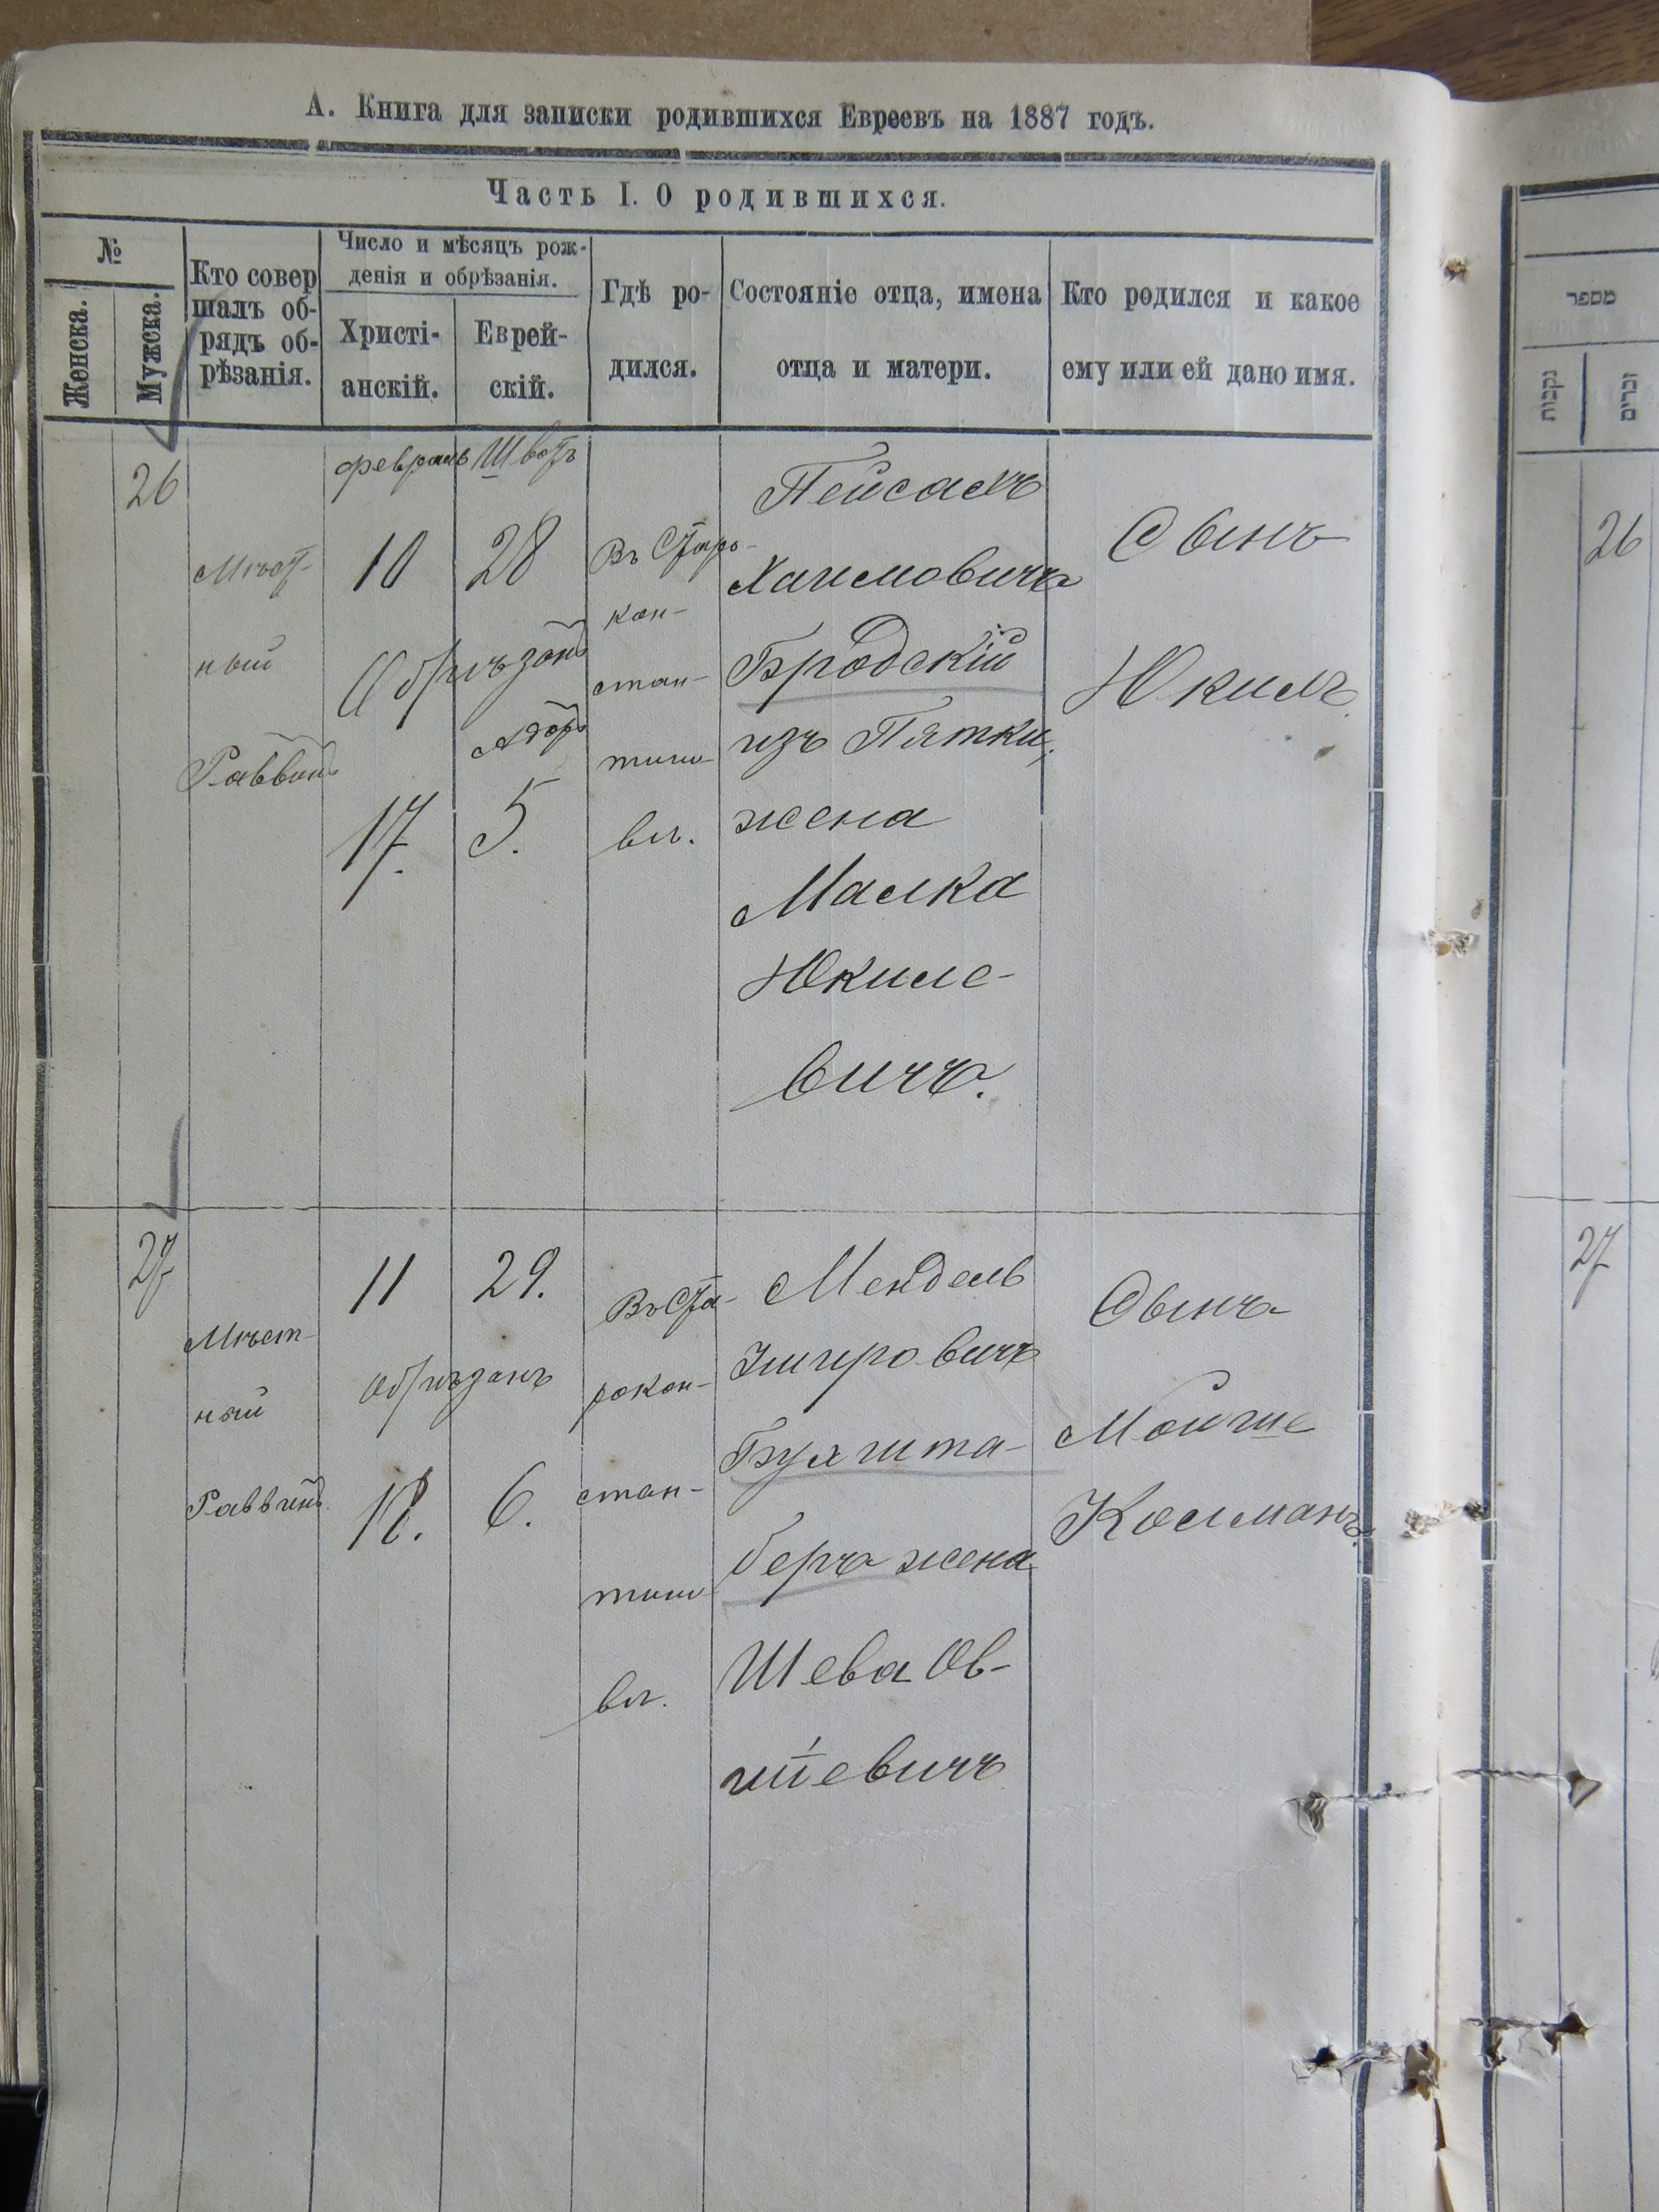 А. Книга для записки родившихся Евреевъ на 1887 годъ.
Часть I. О родившихся.
№
Женска.
Мужска.
Кто совер
шалъ об-
рядъ об-
рѣзанія.
Число и мѣсяцъ рож-
денія и обрѣзанія.
Христі-
анскій.
Еврей-
скій.
Гдѣ ро-
дился.
Состояніе отца, имена
отца и матери.
Кто родился и какое
ему или ей дано имя.
26
Мѣст-
ный
Раввинъ
февраль
10
Обрѣзанъ
17.
Шватъ
28
Адаръ
5.
Въ Старо-
кон-
стан-
тино-
вѣ.
Пейсахъ
Хаимовичъ
Бродскій
изъ Пятки,
жена
Малка
Юкиле-
вичъ.
Сынъ
Юкилъ.
27
Мѣст-
ный
Раввинъ.
11
обрѣзанъ
18.
29.
6.
Въ Ста-
рокон-
стан-
тино
вѣ.
Мендель
Бухшта-
беръ жена
Шева Ов-
шіевичъ
Сынъ
Мойше
Колманъ.
מספר
נקבות
זכרים
26
27